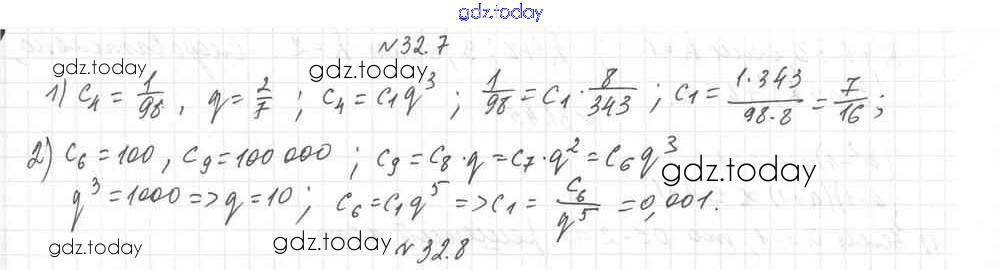 gdz.today
№32.7
gdz.today gdz.today gdz.today
1) c₄ = 1/98, q = 2/7; c₄ = c₁q³; 1/98 = c₁ · 8/343; c₁ = 1·343/98·8 = 7/16;
2) c₆ = 100, c₉ = 100 000; c₉ = c₈ · q = c₇ · q² = c₆q³
gdz.today
q³ = 1000 => q = 10; c₆ = c₁q⁵ => c₁ = c₆/q⁵ = 0,001.
gdz.today gdz.today
№32.8